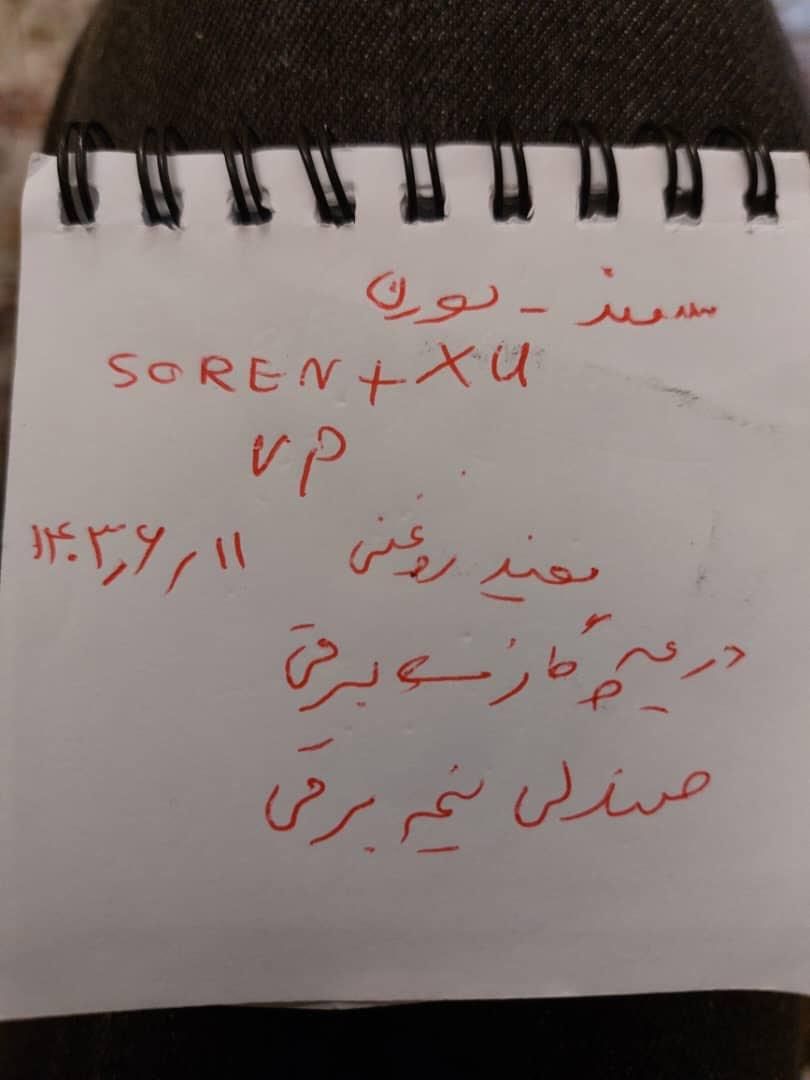 سمند - سورن
SOREN + XU
VP
سفید روغنی ۱۴۰۳٫۶٫۱۱
دریچه گاز برقی
صندلی نیمه برقی